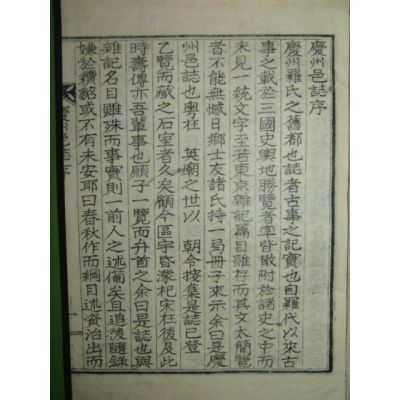 慶州邑誌序
慶州羅氏之舊都也誌者古事之記實也自羅代以來古
事之載於三國史輿地勝覽者率皆散附於諸史之中而
未見一統文字至若東京雜記篇目雖存而其文太簡覽
者不能無憾日鄕士友諸氏持一局冊子來示余曰是慶
州邑誌也粤在 英廟之世以 朝令按集是誌已登
乙覽而藏之石室者久矣顧今區宇昏濛杞宋在後及此
時壽傳亦吾輩事也願子一覽而弁首之余曰是誌也與
雜記名目雖殊而事實則一前人之述備矣且追後隨錄
嫌於續貂或不有未安耶曰春秋作而綱目述資治出而
慶州邑誌序